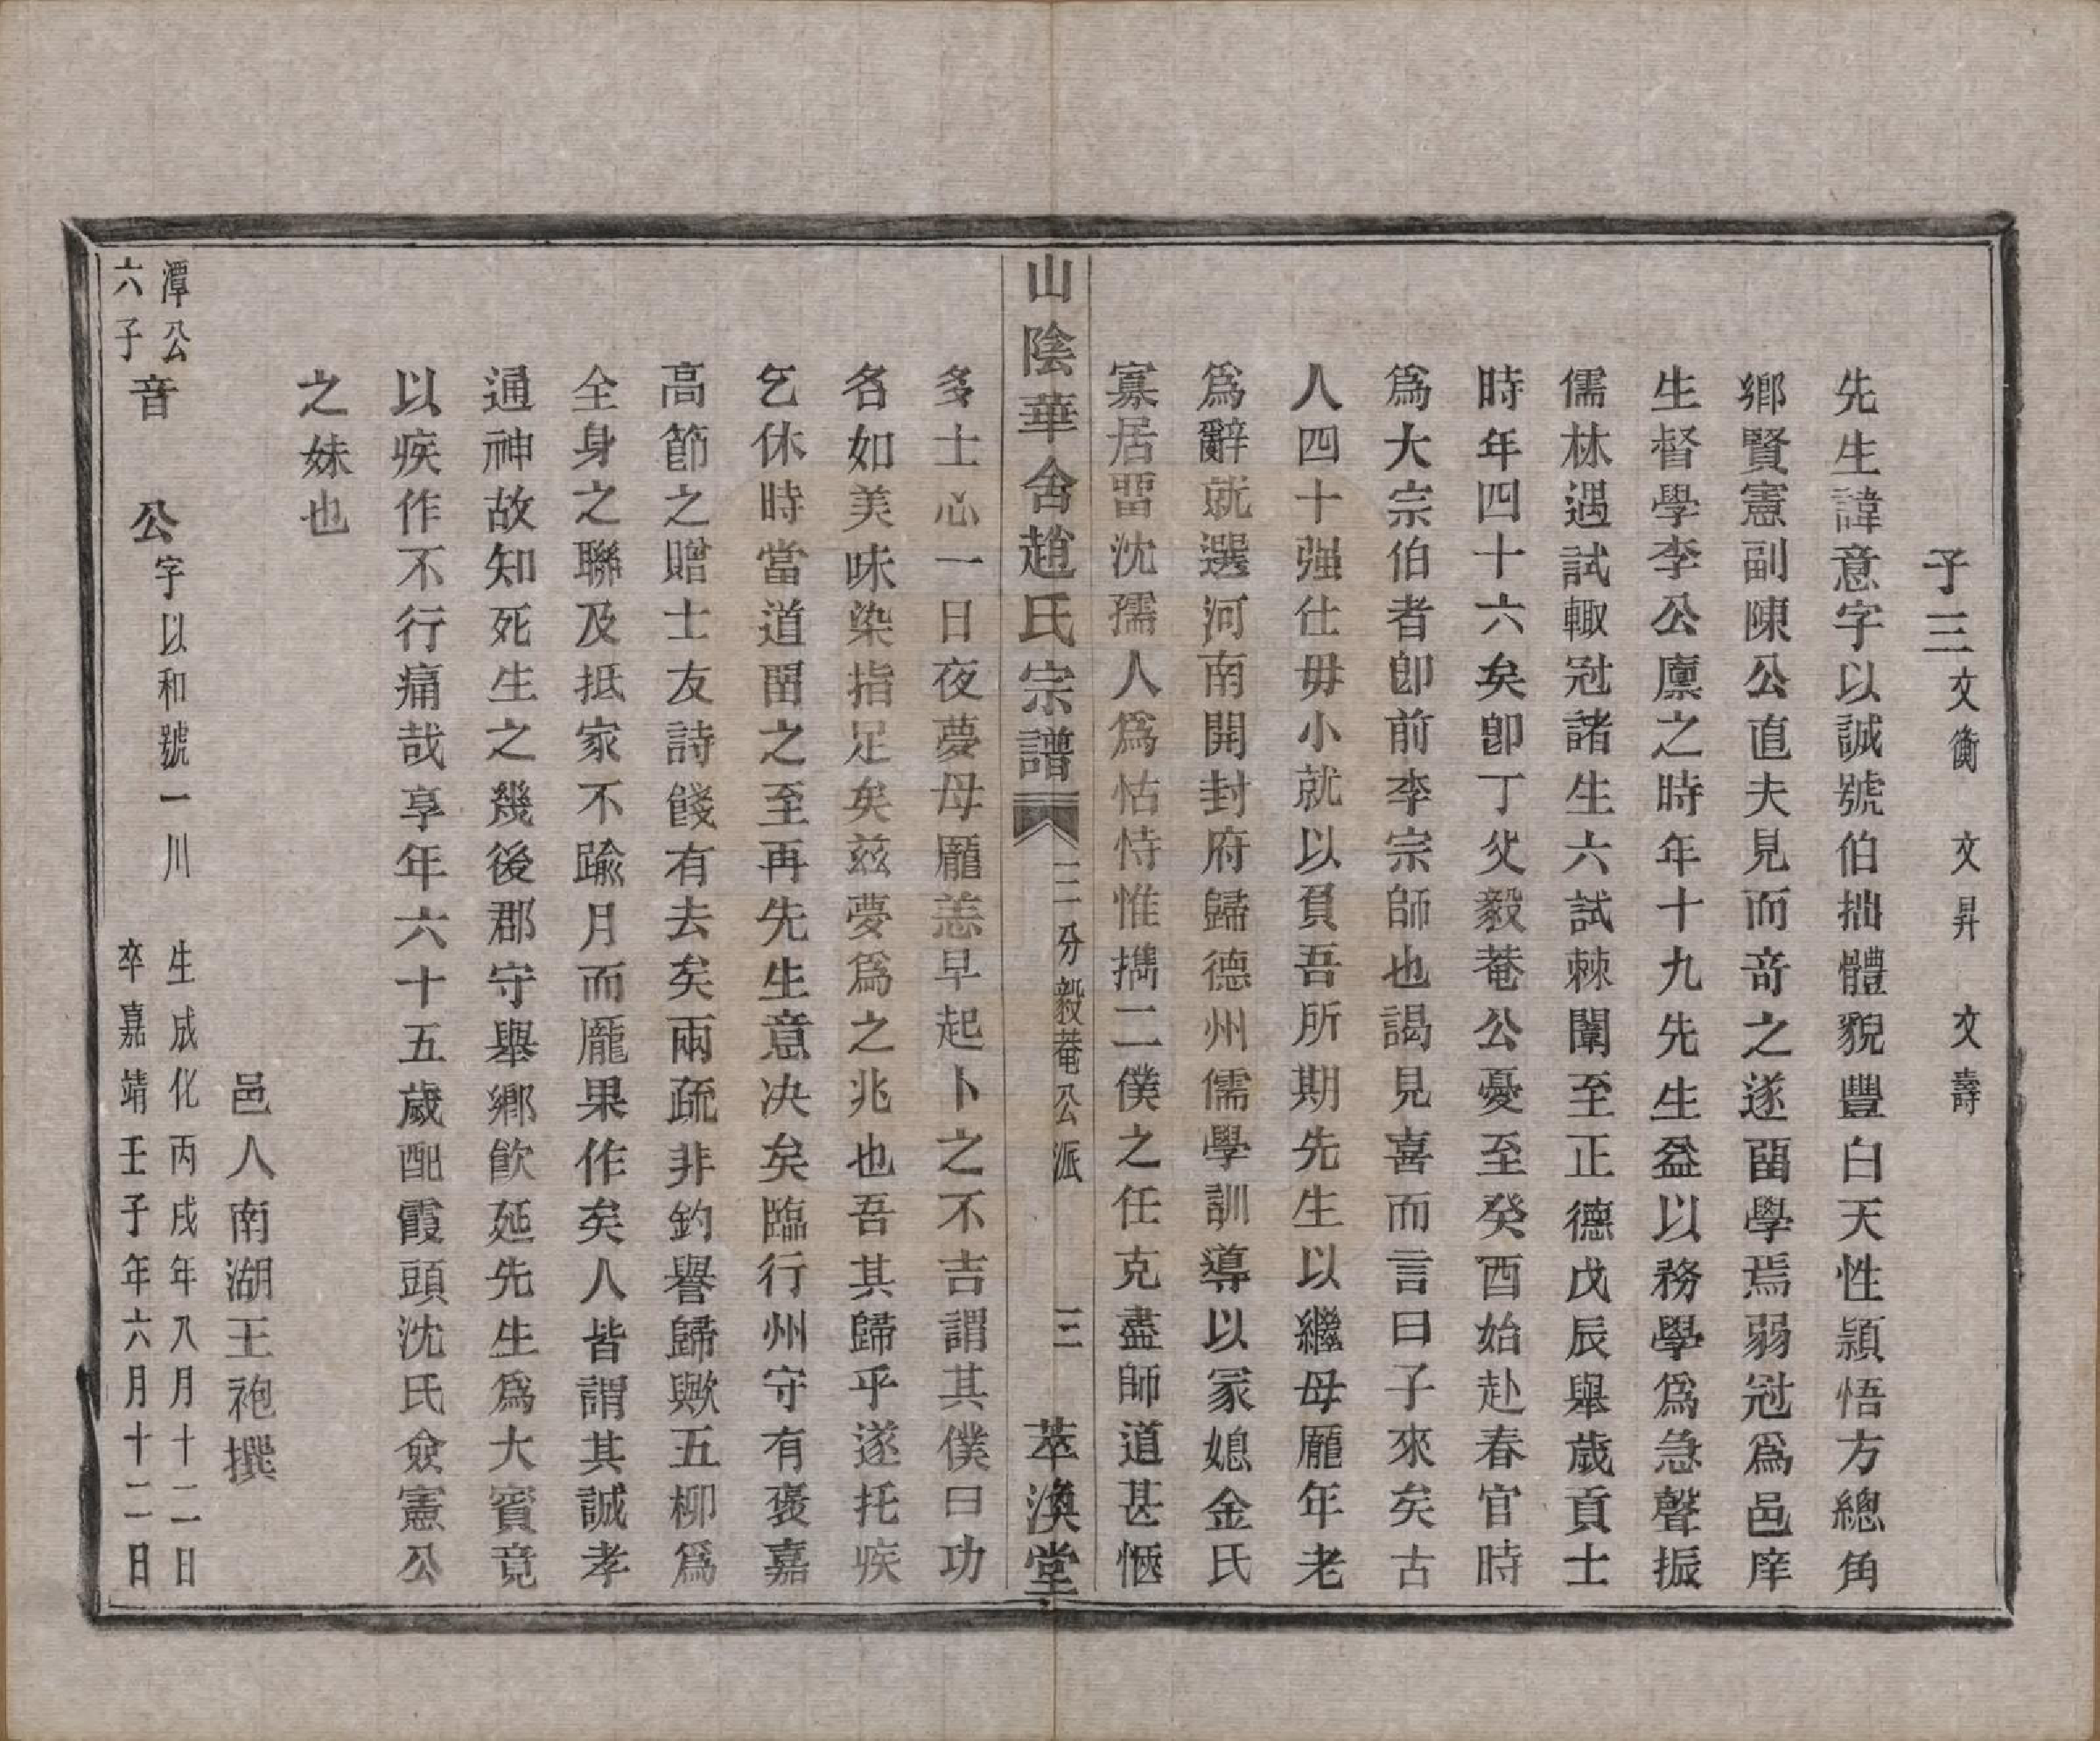 子三文衡　文昇　文壽
先生諱意字以誠號伯拙體貌豐白天性穎悟方總角
鄉賢憲副陳公直夫見而奇之遂畱學焉弱冠爲邑庠
生督學李公廩之時年十九先生益以務學爲急聲振
儒林遇試輙冠諸生六試棘闈至正德戊辰舉歲貢士
時年四十六矣卽丁父毅菴公憂至癸酉始赴春官時
爲大宗伯者卽前李宗師也謁見喜而言曰子來矣古
人四十强仕毋小就以負吾所期先生以繼母龎年老
爲辭就選河南開封府歸德州儒學訓導以冢媳金氏
寡居畱沈孺人爲怙恃惟携二僕之任克盡師道甚愜
山陰華舍趙氏宗譜　三分毅菴公派　三　萃渙堂
多士心一日夜夢母龎恙早起卜之不吉謂其僕曰功
名如美味染指足矣兹夢爲之兆也吾其歸乎遂托疾
乞休時當道畱之至再先生意决矣臨行州守有褒嘉
高節之贈士友詩餞有去矣兩疏非釣譽歸歟五柳爲
全身之聯及抵家不踰月而龎果作矣人皆謂其誠孝
通神故知死生之幾後郡守舉鄉飮延先生爲大賓竟
以疾作不行痛哉享年六十五歲配霞頭沈氏僉憲公
之妹也
邑人南湖王袍撰
潭公六子音　公字以和號一川　生成化丙戌年八月十二日卒嘉靖壬子年六月十二日